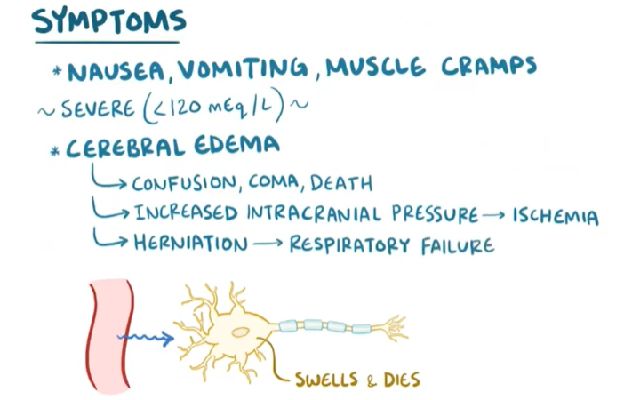 SYMPTOMS
* NAUSEA, VOMITING, MUSCLE CRAMPS
~ SEVERE (<120 mEq/L) ~
* CEREBRAL EDEMA
↳ CONFUSION, COMA, DEATH
↳ INCREASED INTRACRANIAL PRESSURE → ISCHEMIA
↳ HERNIATION → RESPIRATORY FAILURE
SWELLS & DIES